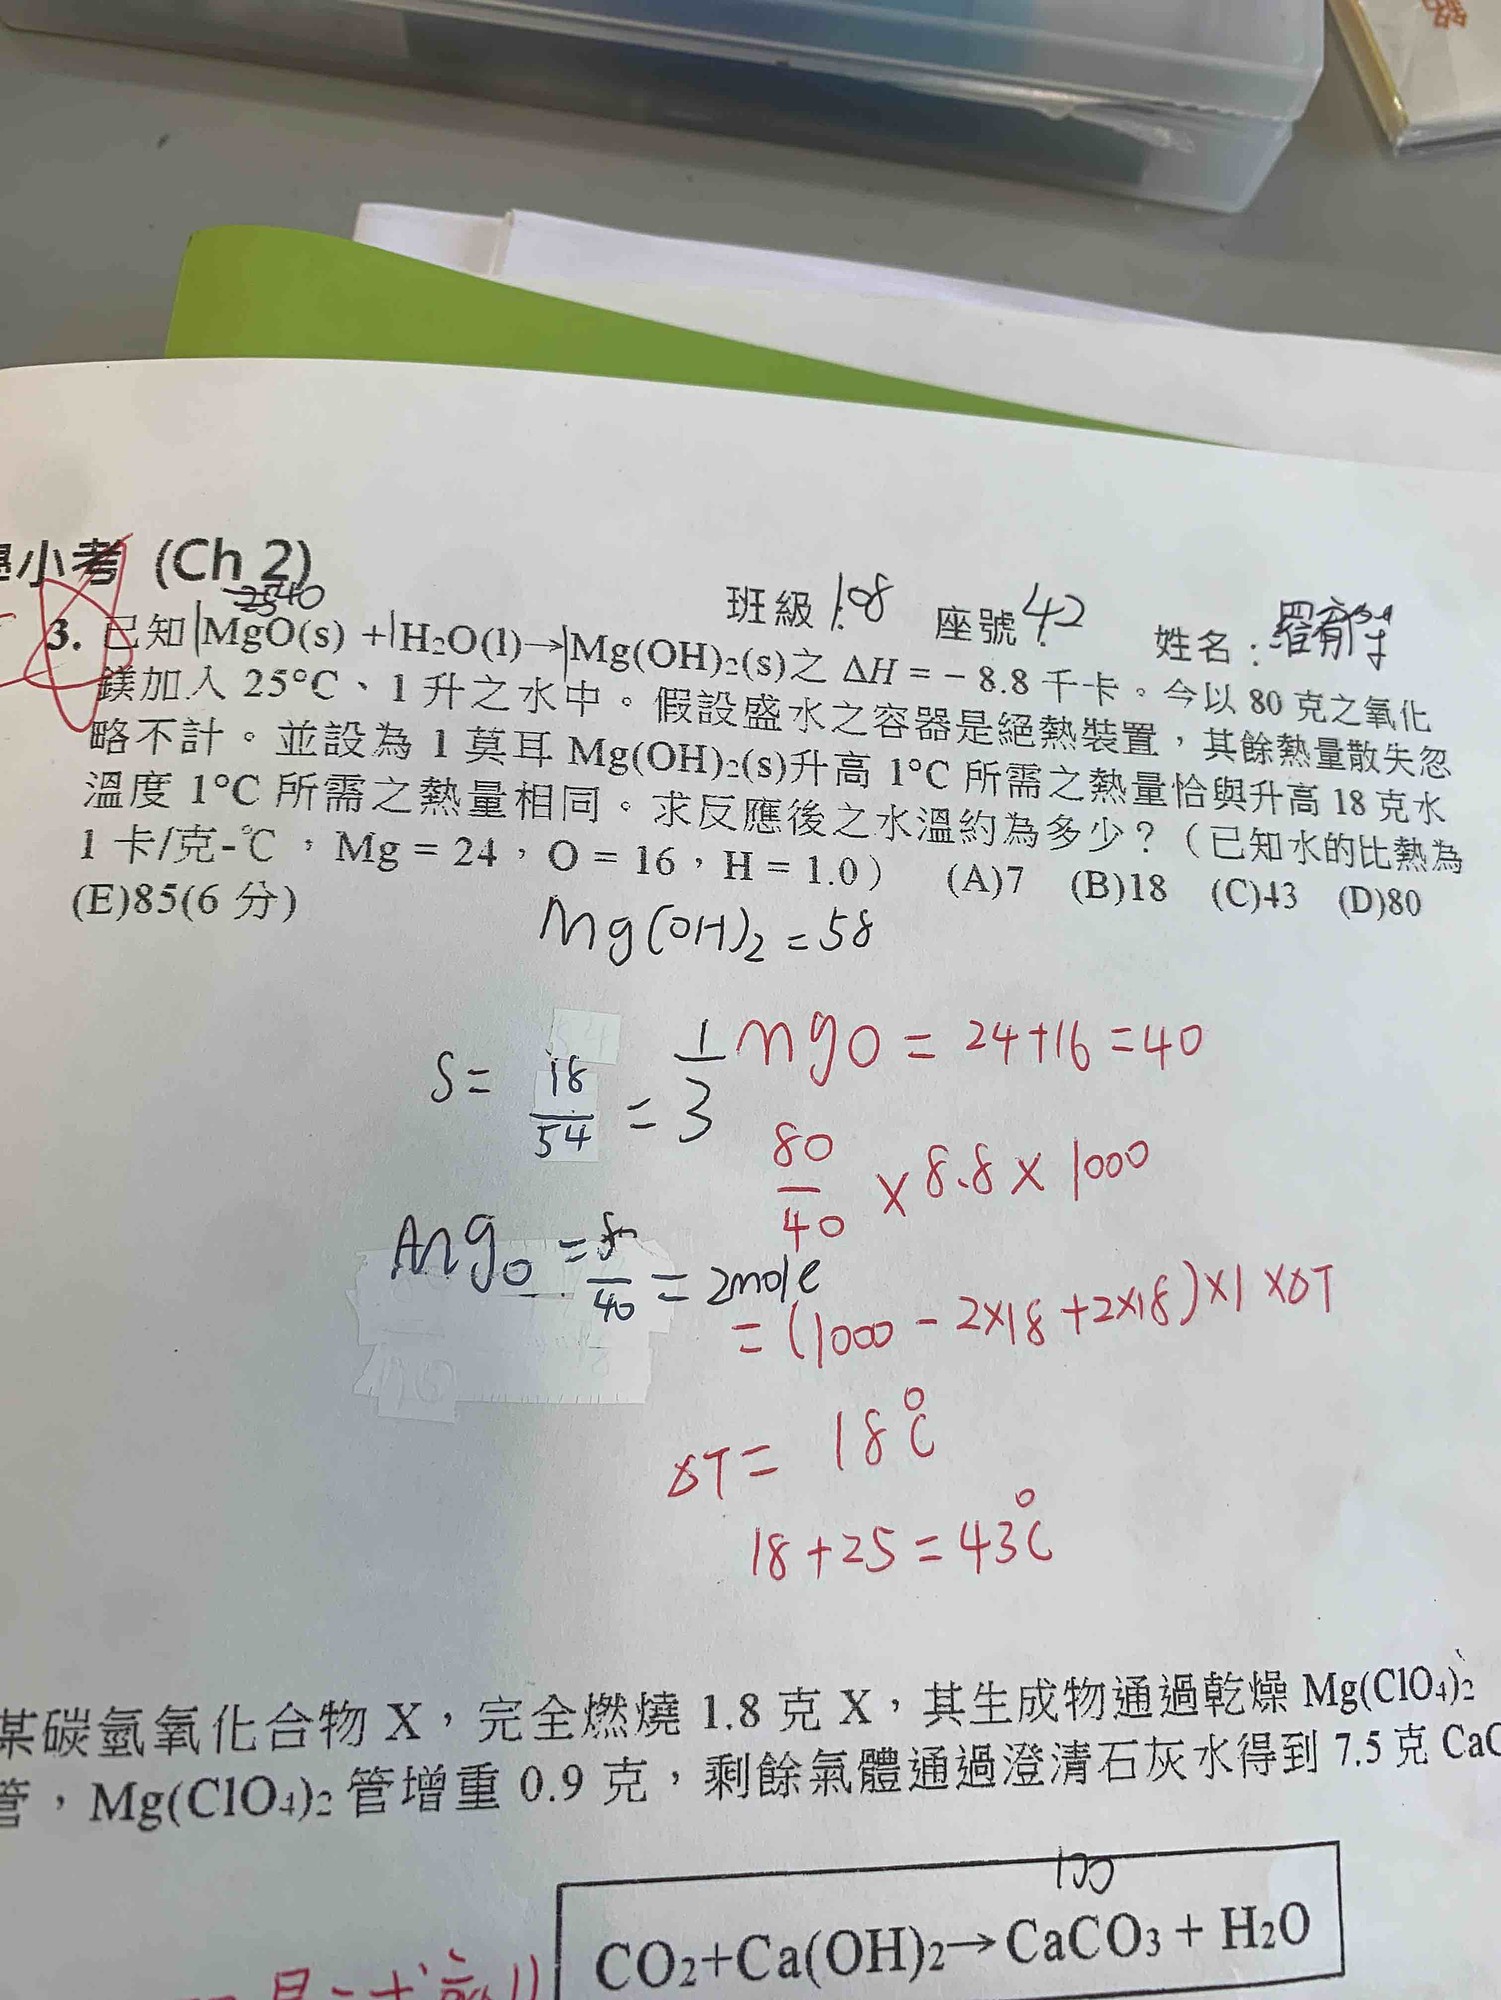 小考 (Ch 2)
班級 108 座號 42 姓名:羅
2540
3. 已知 MgO(s) + H₂O(l)→ Mg(OH)₂(s)之 ΔH = − 8.8 千卡。今以 80 克之氧化
鎂加入 25°C、1 升之水中。假設盛水之容器是絕熱裝置,其餘熱量散失忽
略不計。並設為 1 莫耳 Mg(OH)₂(s)升高 1°C 所需之熱量恰與升高 18 克水
溫度 1°C 所需之熱量相同。求反應後之水溫約為多少?(已知水的比熱為
1 卡/克-℃,Mg = 24,O = 16,H = 1.0) (A)7 (B)18 (C)43 (D)80
(E)85(6 分)
Mg(OH)₂ = 58
S = 18/54 = 1/3
MgO = 24+16 = 40
80/40 × 8.8 × 1000
MgO = 80/40 = 2mole
= (1000 − 2×18 + 2×18)×1 ×ΔT
ΔT = 18℃
18 + 25 = 43℃
某碳氫氧化合物 X,完全燃燒 1.8 克 X,其生成物通過乾燥 Mg(ClO₄)₂
管,Mg(ClO₄)₂ 管增重 0.9 克,剩餘氣體通過澄清石灰水得到 7.5 克 CaC
100
CO₂+Ca(OH)₂→CaCO₃ + H₂O